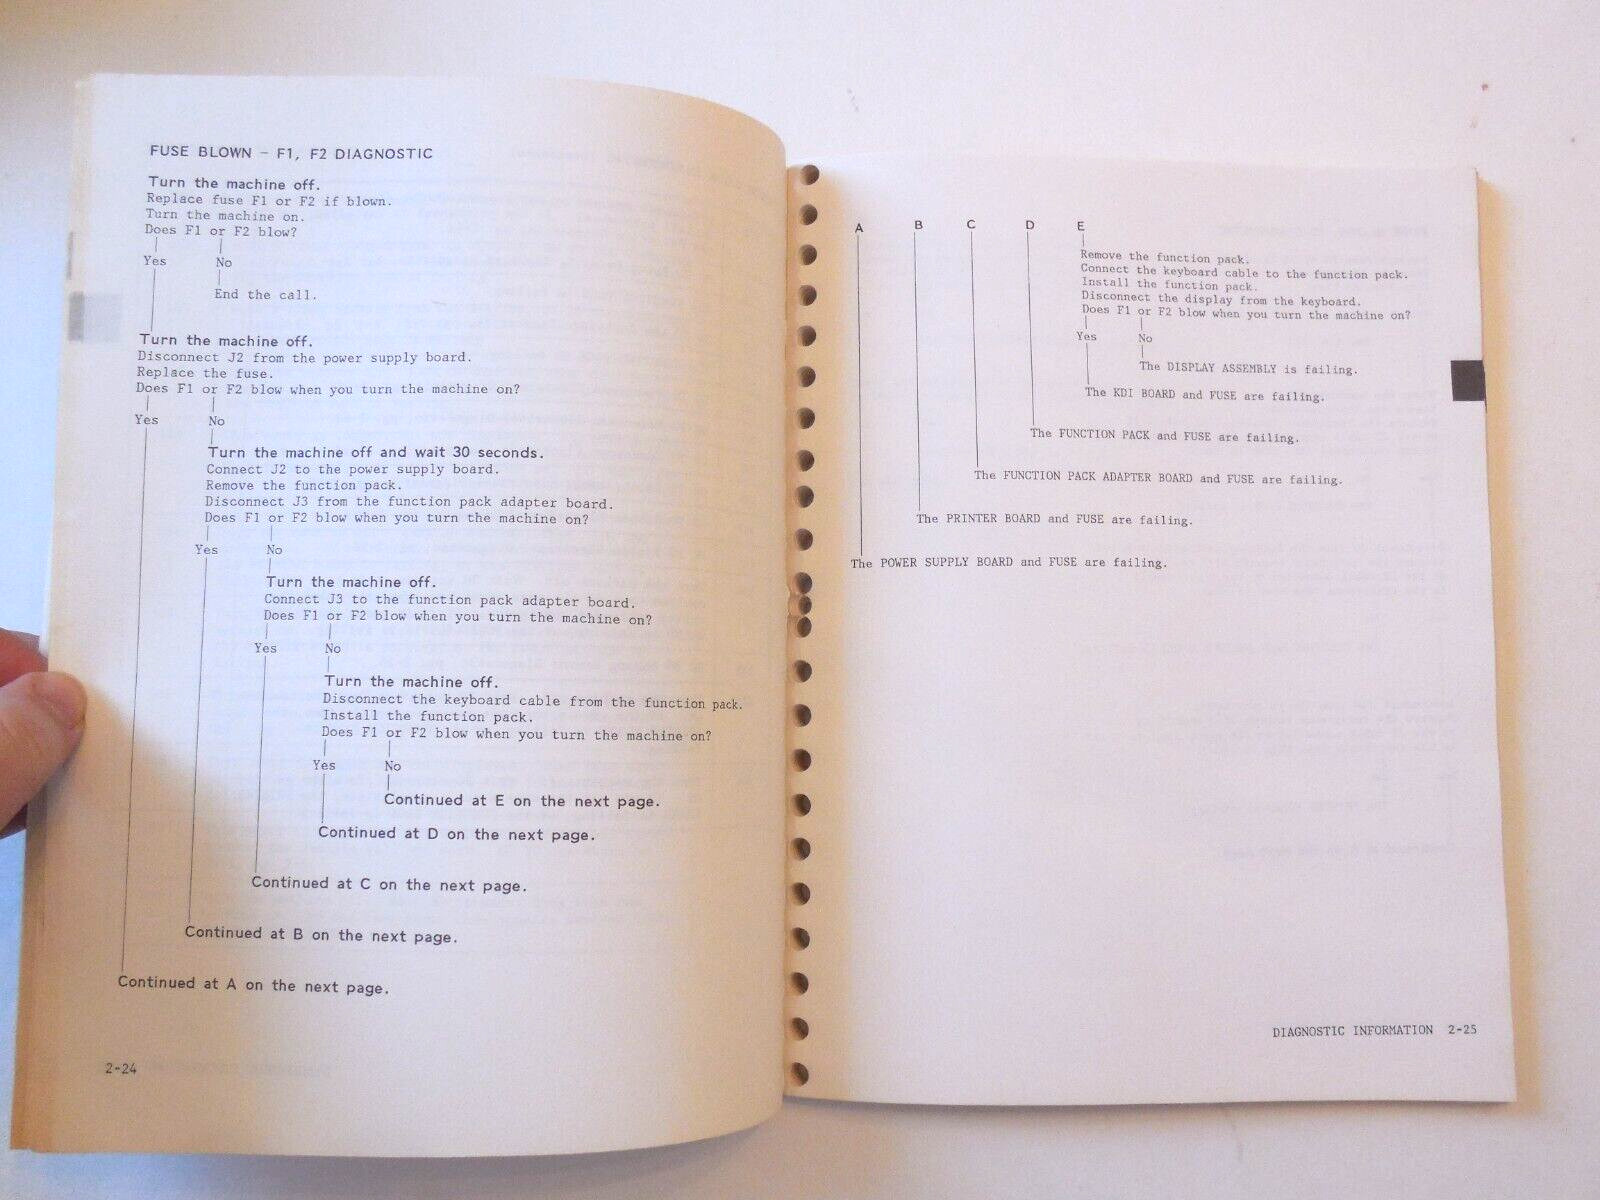 FUSE BLOWN - F1, F2 DIAGNOSTIC
Turn the machine off.
Replace fuse F1 or F2 if blown.
Turn the machine on.
Does F1 or F2 blow?
Yes No
End the call.
Turn the machine off.
Disconnect J2 from the power supply board.
Replace the fuse.
Does F1 or F2 blow when you turn the machine on?
Yes No
Turn the machine off and wait 30 seconds.
Connect J2 to the power supply board.
Remove the function pack.
Disconnect J3 from the function pack adapter board.
Does F1 or F2 blow when you turn the machine on?
Yes No
Turn the machine off.
Connect J3 to the function pack adapter board.
Does F1 or F2 blow when you turn the machine on?
Yes No
Turn the machine off.
Disconnect the keyboard cable from the function pack.
Install the function pack.
Does F1 or F2 blow when you turn the machine on?
Yes No
Continued at E on the next page.
Continued at D on the next page.
Continued at C on the next page.
Continued at B on the next page.
Continued at A on the next page.
2-24
A B C D E
Remove the function pack.
Connect the keyboard cable to the function pack.
Install the function pack.
Disconnect the display from the keyboard.
Does F1 or F2 blow when you turn the machine on?
Yes No
The DISPLAY ASSEMBLY is failing.
The KDI BOARD and FUSE are failing.
The FUNCTION PACK and FUSE are failing.
The FUNCTION PACK ADAPTER BOARD and FUSE are failing.
The PRINTER BOARD and FUSE are failing.
The POWER SUPPLY BOARD and FUSE are failing.
DIAGNOSTIC INFORMATION 2-25